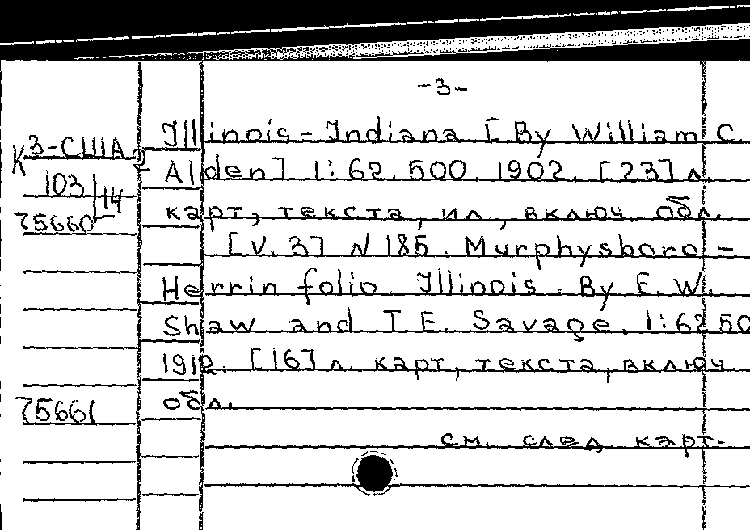 -3-
Illinois-Indiana [By William C.
К 3-США
Alden] 1:62.500. 1902. [23] л.
103/14
карт, текста, ил., включ. обл.
75660
[V. 3] N 185. Murphysboro-
Herrin folio. Illinois. By E. W.
Shaw and T. E. Savage. 1:62 50
1912. [16] л. карт, текста, включ
75661
обл.
см. след. карт.